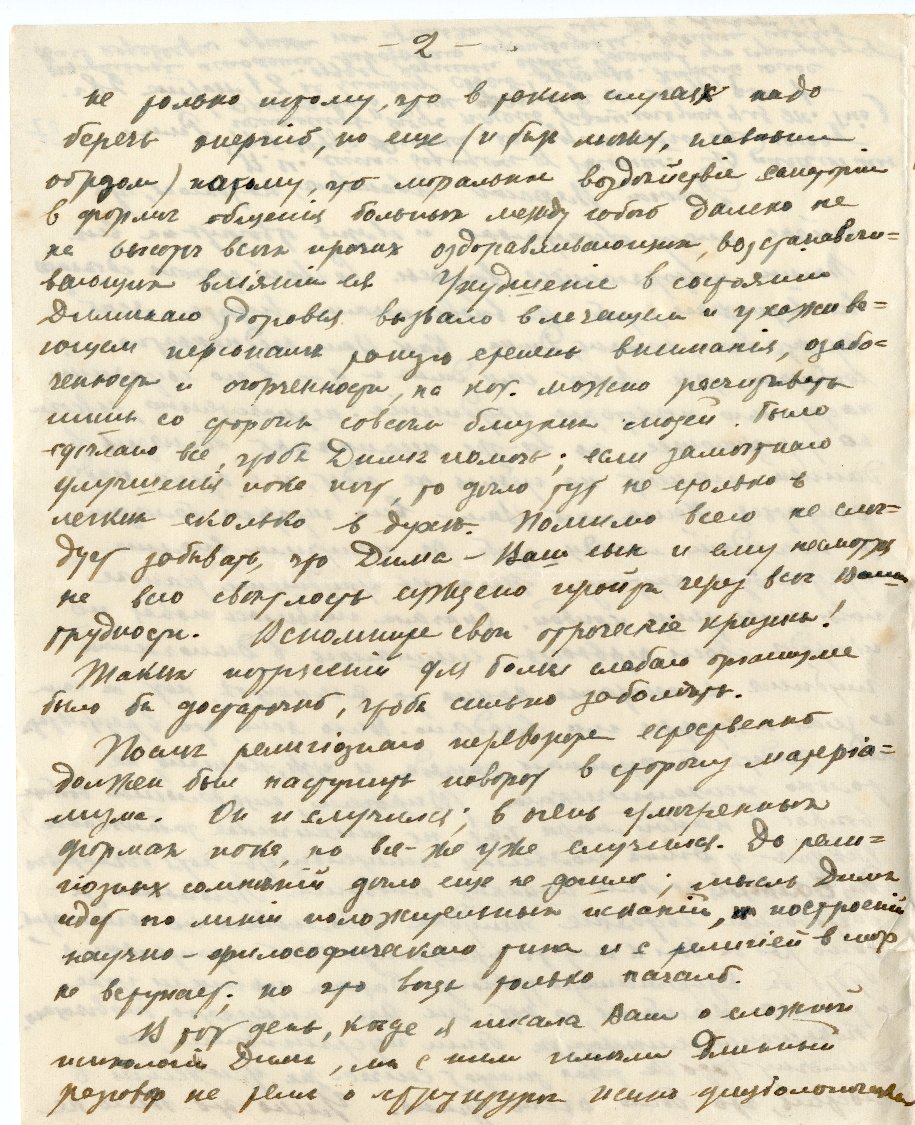 - 2 -
не только потому, что в таких случаях надо
беречь энергию, но еще (и быть может, главным
образом) потому, что моральное воздействие санатории
в форме общения больных между собою далеко не
на высоте всех прочих оздоравливающих, возстанавли-
вающих влияний ея. Ухудшение в состоянии
Диминаго здоровья вызвало в лечащем и ухажива-
ющем персонале такую степень внимания, озабо-
ченности и огорченности, на кот. можно расчитывать
лишь со стороны совсем близких людей. Было
сделано все, чтобы Диме помочь; если заметнаго
улучшения пока нет, то дело тут не столько в
легких сколько в духе. Помимо всего не сле-
дует забывать, что Дима – Ваш сын и ему несмотря
на всю светлость суждено пройти через все Ваши
трудности. Вспомните свои отроческие кризисы!
Таких потрясений для более слабаго организма
было бы достаточно, чтобы сильно заболеть.
После религиознаго переворота естественно
должен был наступить поворот в сторону матерiа-
лизма. Он и случился; в очень умеренных
формах пока, но все-же уже случился. До рели-
гiозных сомнѣнiй дело еще не дошло; мысль Димы
идет по линiи положительных исканiй, построенiй
научно-философическаго типа и с религiей в спор
не вступает; но это ведь только начало.
В тот день, когда я писала Вам о сложной
психологiи Димы, мы с ним имели длинный
разговор на тему о структуре